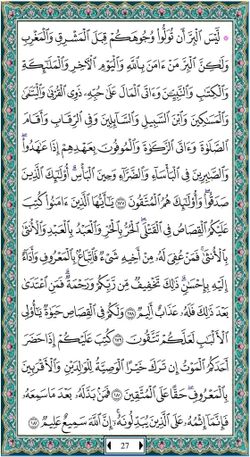 ۞ لَّيۡسَ ٱلۡبِرَّ أَن تُوَلُّواْ وُجُوهَكُمۡ قِبَلَ ٱلۡمَشۡرِقِ وَٱلۡمَغۡرِبِ
وَلَٰكِنَّ ٱلۡبِرَّ مَنۡ ءَامَنَ بِٱللَّهِ وَٱلۡيَوۡمِ ٱلۡأٓخِرِ وَٱلۡمَلَٰٓئِكَةِ
وَٱلۡكِتَٰبِ وَٱلنَّبِيِّـۧنَ وَءَاتَى ٱلۡمَالَ عَلَىٰ حُبِّهِۦ ذَوِي ٱلۡقُرۡبَىٰ وَٱلۡيَتَٰمَىٰ
وَٱلۡمَسَٰكِينَ وَٱبۡنَ ٱلسَّبِيلِ وَٱلسَّآئِلِينَ وَفِي ٱلرِّقَابِ وَأَقَامَ
ٱلصَّلَوٰةَ وَءَاتَى ٱلزَّكَوٰةَ وَٱلۡمُوفُونَ بِعَهۡدِهِمۡ إِذَا عَٰهَدُواْۖ
وَٱلصَّٰبِرِينَ فِي ٱلۡبَأۡسَآءِ وَٱلضَّرَّآءِ وَحِينَ ٱلۡبَأۡسِۗ أُوْلَٰٓئِكَ ٱلَّذِينَ
صَدَقُواْۖ وَأُوْلَٰٓئِكَ هُمُ ٱلۡمُتَّقُونَ ١٧٧ يَٰٓأَيُّهَا ٱلَّذِينَ ءَامَنُواْ كُتِبَ
عَلَيۡكُمُ ٱلۡقِصَاصُ فِي ٱلۡقَتۡلَىۖ ٱلۡحُرُّ بِٱلۡحُرِّ وَٱلۡعَبۡدُ بِٱلۡعَبۡدِ وَٱلۡأُنثَىٰ
بِٱلۡأُنثَىٰۚ فَمَنۡ عُفِيَ لَهُۥ مِنۡ أَخِيهِ شَيۡءٞ فَٱتِّبَاعُۢ بِٱلۡمَعۡرُوفِ وَأَدَآءٌ
إِلَيۡهِ بِإِحۡسَٰنٖۗ ذَٰلِكَ تَخۡفِيفٞ مِّن رَّبِّكُمۡ وَرَحۡمَةٞۗ فَمَنِ ٱعۡتَدَىٰ
بَعۡدَ ذَٰلِكَ فَلَهُۥ عَذَابٌ أَلِيمٞ ١٧٨ وَلَكُمۡ فِي ٱلۡقِصَاصِ حَيَوٰةٞ يَٰٓأُوْلِي
ٱلۡأَلۡبَٰبِ لَعَلَّكُمۡ تَتَّقُونَ ١٧٩ كُتِبَ عَلَيۡكُمۡ إِذَا حَضَرَ
أَحَدَكُمُ ٱلۡمَوۡتُ إِن تَرَكَ خَيۡرًا ٱلۡوَصِيَّةُ لِلۡوَٰلِدَيۡنِ وَٱلۡأَقۡرَبِينَ
بِٱلۡمَعۡرُوفِۖ حَقًّا عَلَى ٱلۡمُتَّقِينَ ١٨٠ فَمَنۢ بَدَّلَهُۥ بَعۡدَ مَا سَمِعَهُۥ
فَإِنَّمَآ إِثۡمُهُۥ عَلَى ٱلَّذِينَ يُبَدِّلُونَهُۥٓۚ إِنَّ ٱللَّهَ سَمِيعٌ عَلِيمٞ ١٨١
27